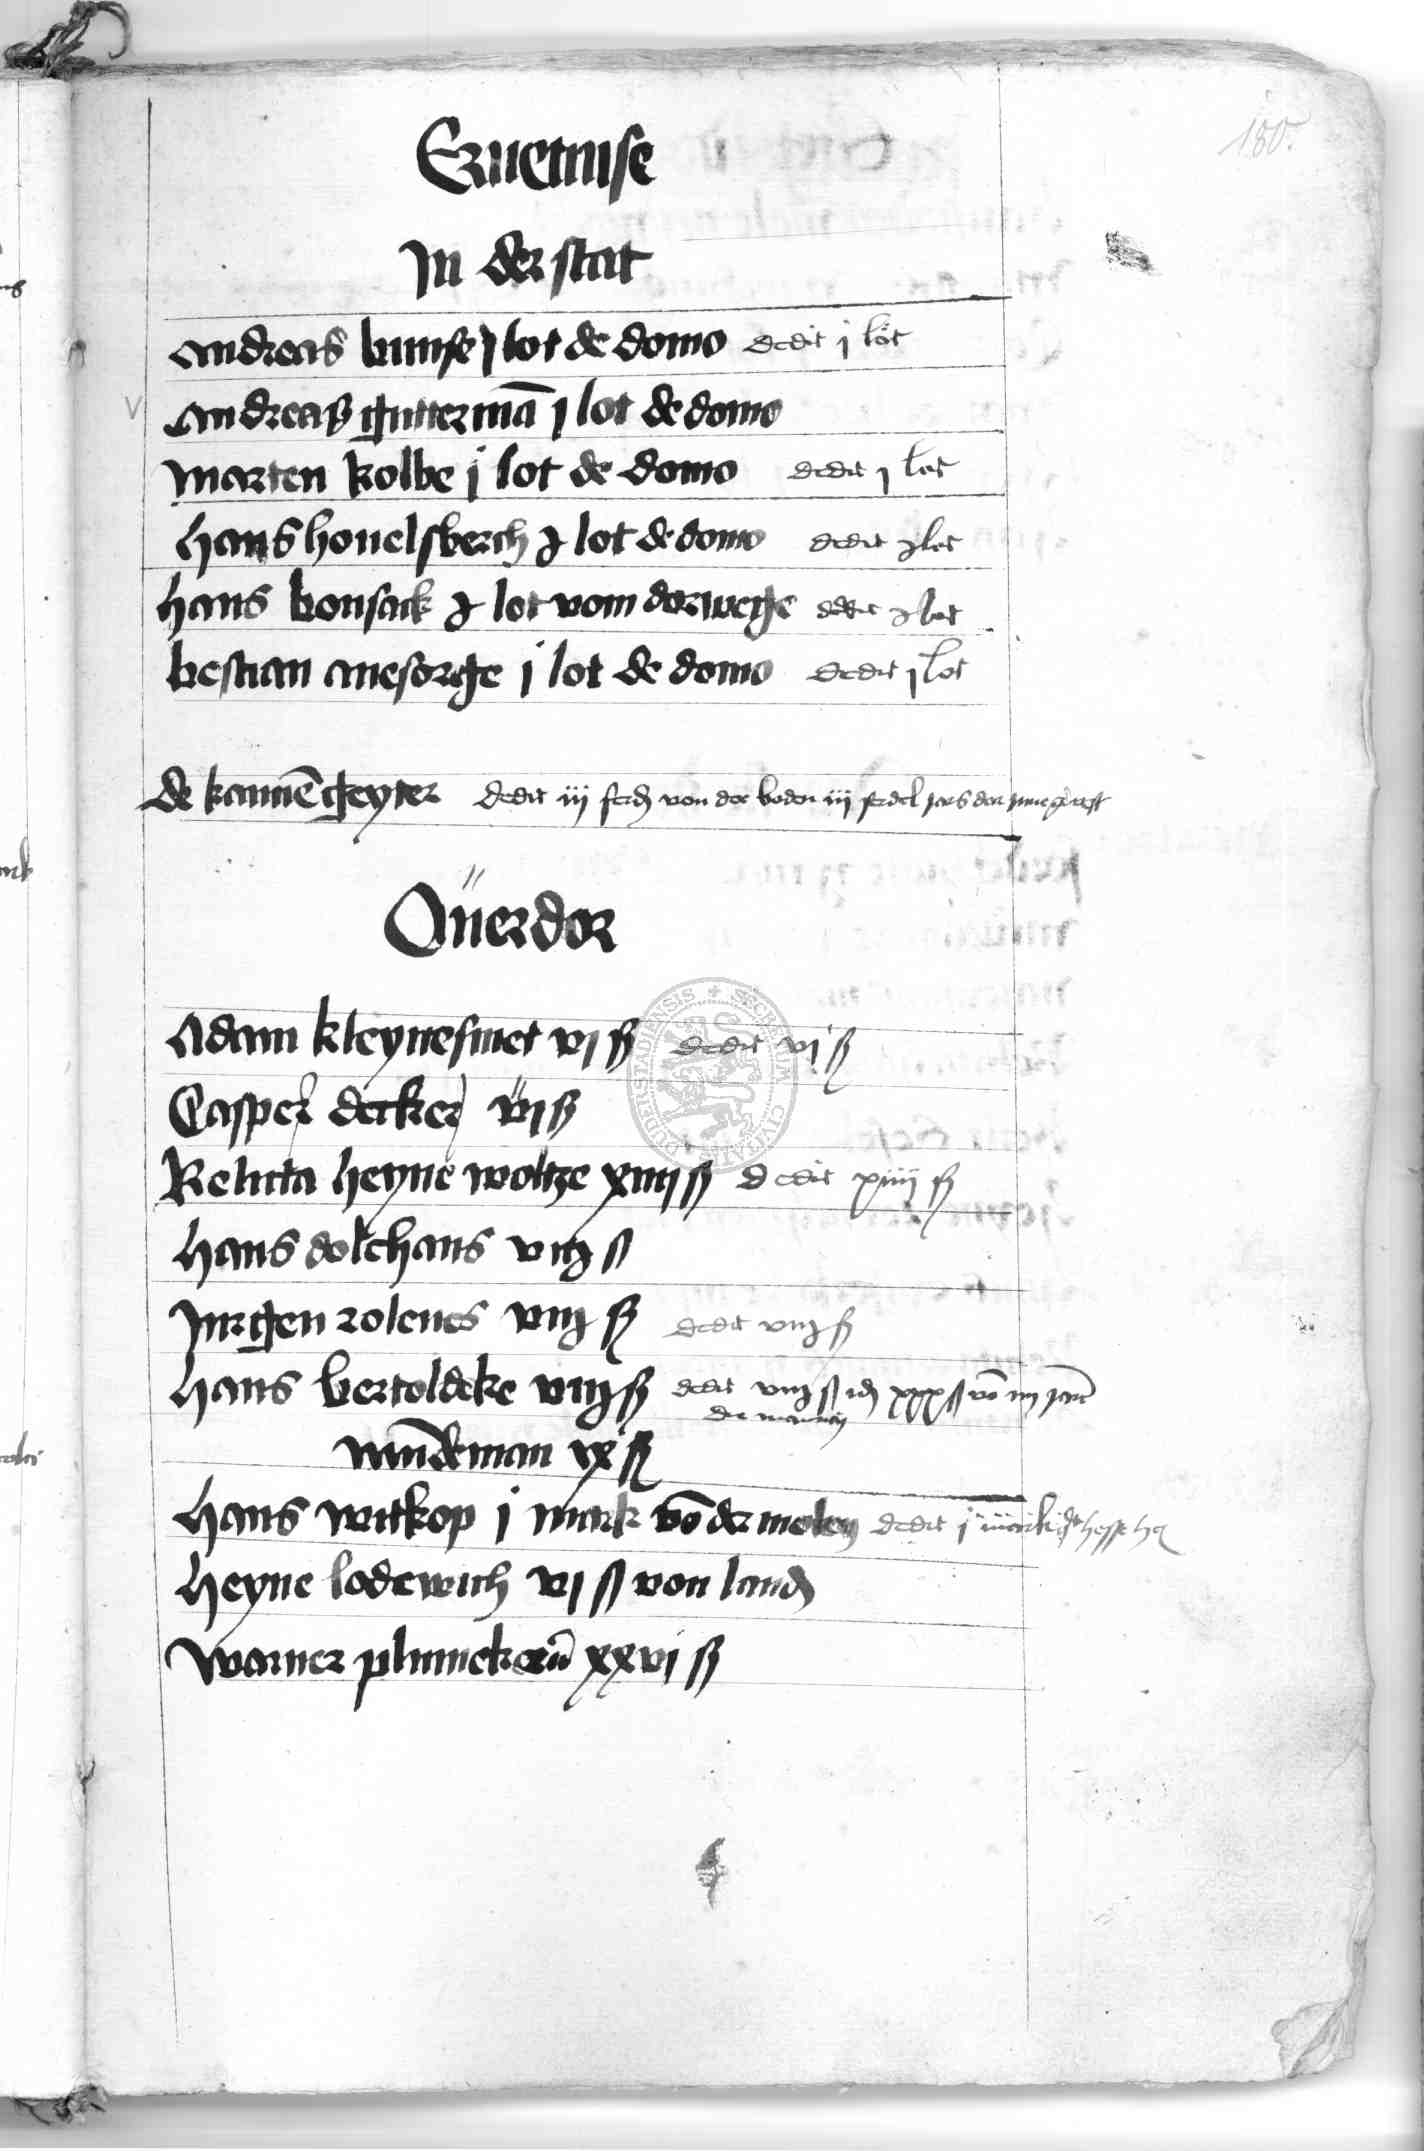 180.
Eruetnise
In der stat
Andreas bunse j lot de domo dedit j lot
Andreas guttermā j lot de domo
Marten kolbe j lot de domo dedit j lot
Hans houelsberch j lot de domo dedit j lot
Hans bonsack j lot vom dorwege dedit j lot
bestian anesorge j lot de domo dedit j lot
de kannēgeyter dedit iij ferd von der boden iij ferdel jars dar
Ouerdor
Adam kleynesmet vj ß dedit vj ß
Casper decker vij ß
Relicta heyne woltze xiiij ß dedit xiiij ß
Hans dolehans viij ß
Jurgen roleues viij ß dedit viij ß
Hans bertoldeke viij ß dedit viij ß xxx ß vō iij jarē
wūdeman ix ß
Hans witkop j mark vō der molen dedit j mark hesse
Heyne lodewich vj ß von land
Warner plunicker xxvj ß
SECRETUM CIVITATIS DUDERSTADIENSIS